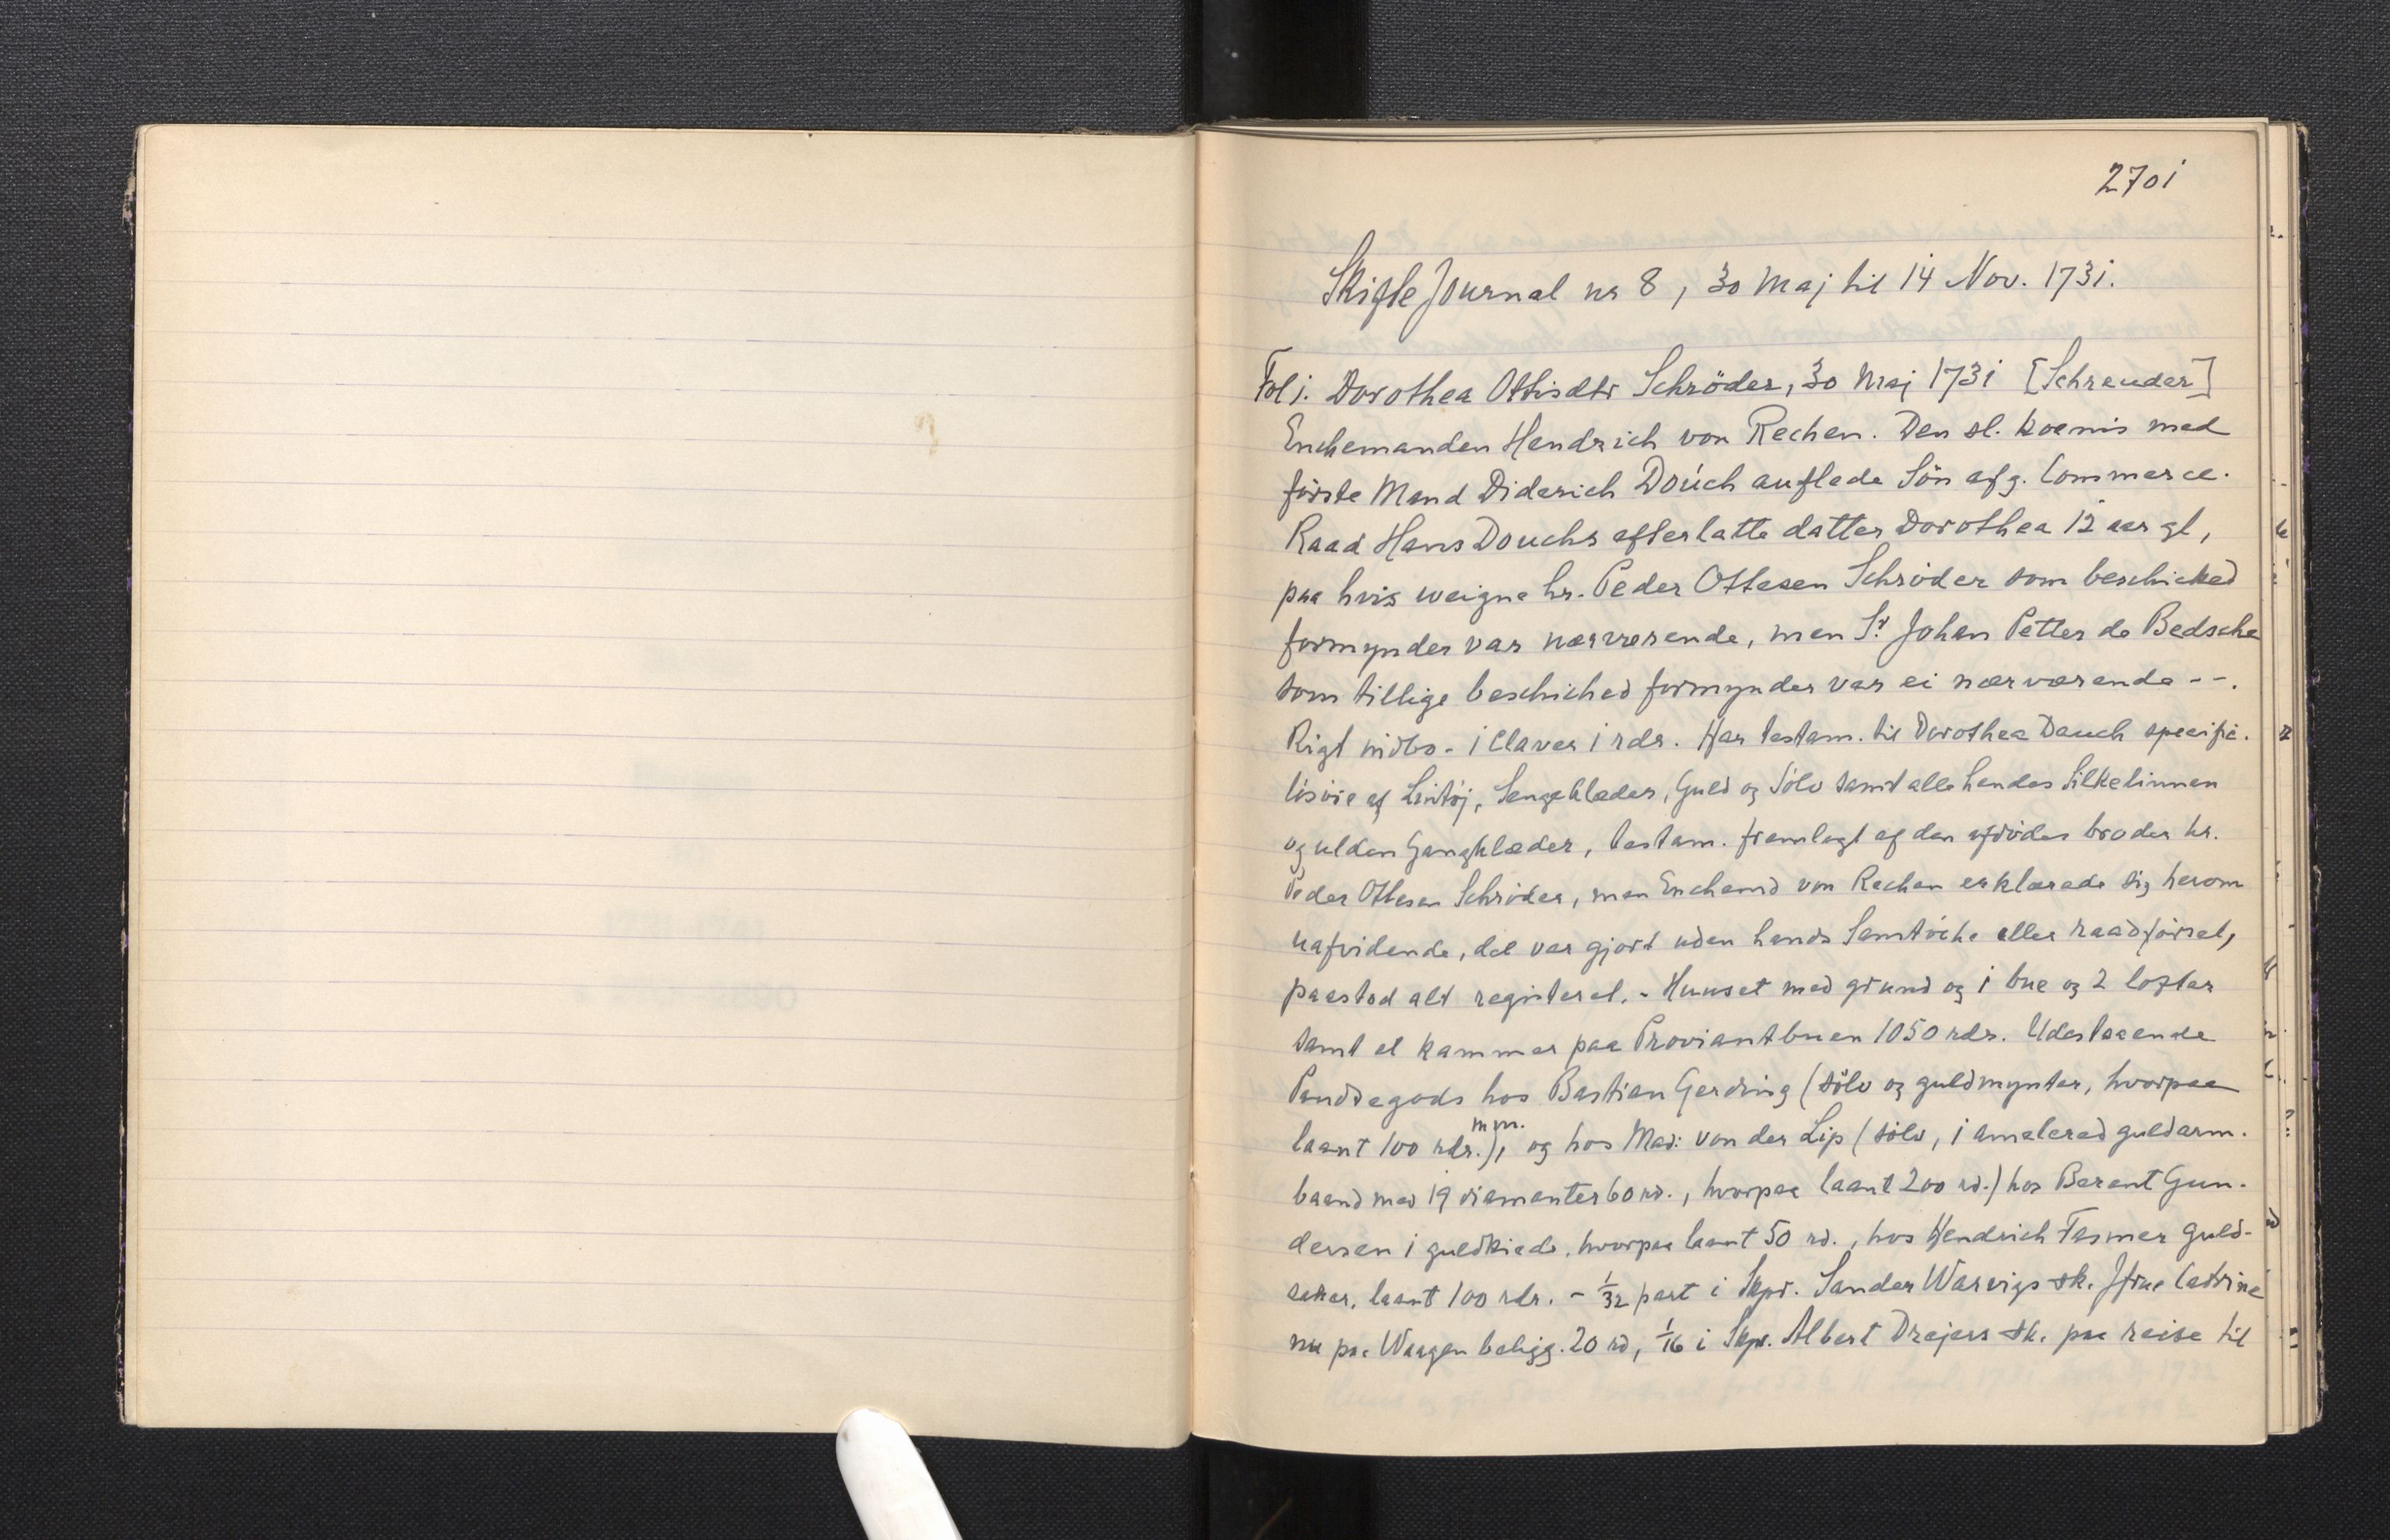 2701
Skifte Journal nr 8, 30 Maj til 14 Nov. 1731.
Fol 1. Dorothea Ottisdtr Schröder, 30 Maj 1731 [Schreuder]
Enchemanden Hendrich von Rechen. Den sl. koenis med
förste Mand Diderich Douch auflede Sön afg. Commerce.
Raad Hans Douchs efterlatte datter Dorothea 12 aar gl,
paa hvis weigne hr. Peder Ottesen Schröder som beschicked
formynder var nærværende, men Sr Johan Petter de Bedsche
som tillige beschicked formynder var ei nærværende --.
Rigt indbo - 1 Claver 1 rdr. Har testam. til Dorothea Dauch specifi.
löst af Lintöj, Sengeklæder, Guld og Sölv samt alle hendes Silkelinnen
og ulden Gangklæder, testam. fremlagt af den afdödes broder hr.
Peder Ottesen Schröder, men Enchemd von Rechen erklærede sig herom
uafvidende, det var gjort uden hands Samtöche eller raadförsel,
paastod alt registeret. - Huuset med grund og 1 bue og 2 lofter
samt et kammer paa Proviantbuen 1050 rdr. Udestaaende
Panddegods hos Bastian Gerding (sölv og guldmynter, hvorpaa
laant 100 rdr.), m.m. og hos Mad: von der Lip (sölv, 1 amelered guldarm.
baand med 19 diamanter 60 rd., hvorpaa laant 200 rd.) hos Berent Gun-
dersen 1 guldkiede, hvorpaa laant 50 rd., hos Hendrich Fasmer guld-
saker, laant 100 rdr. - 1/32 part i Skpr. Sander Warvigs sk. Jfrue Catrine
nu paa Waagen beligg. 20 rd, 1/16 i Skpr. Albert Drejers sk. paa reise til